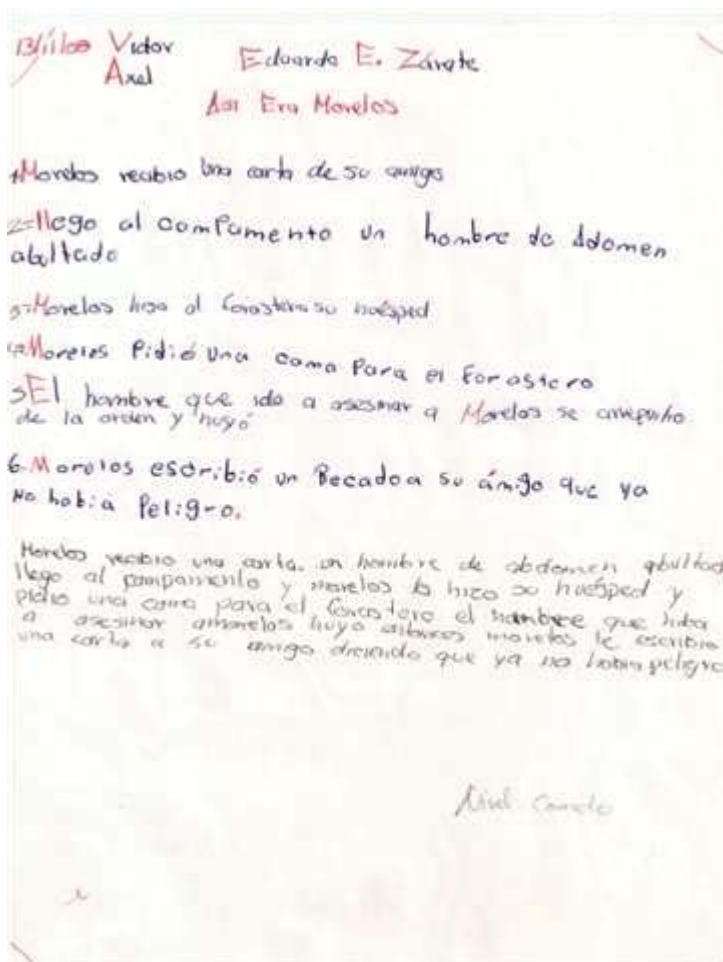 Victor Eduardo E. Zárate
Axel
Asi Era Morelos
1 Morelos recibio una carta de su amigo
2=llego al campamento un hombre de Adomen
abultado
3=Morelos hizo al forastero su huésped
4=Morelos Pidió una cama Para el Forastero
5 El hombre que ido a asesinar a Morelos se arrepintio
de la orden y huyó
6. Morelos escribió un Recado a su ámigo que ya
No había Peligro.
Morelos recibio una carta. un hombre de abdomen abultad
llego al campamento y morelos lo hizo su huésped y
pidio una cama para el forastero el hombre que hiba
a asesinar amorelos huyo entonces morelos le escribio
una carta a su amigo diciendo que ya no habia peligro